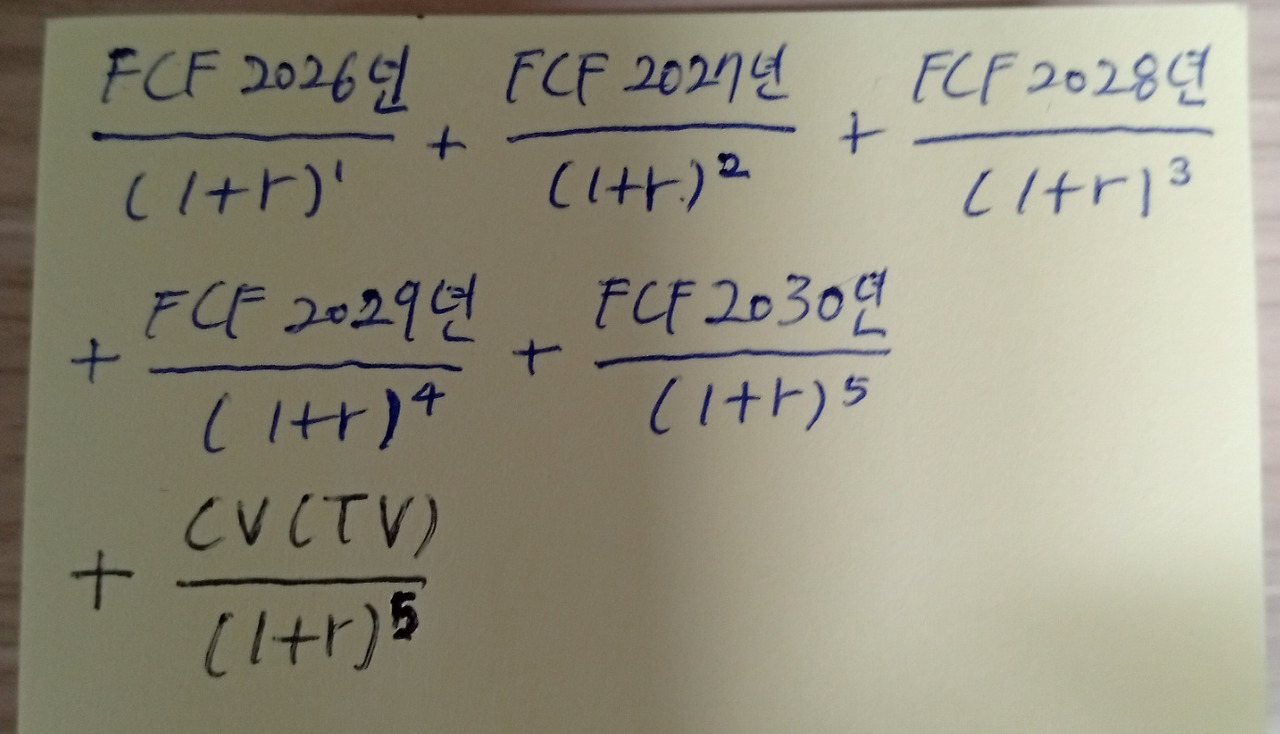 FCF 2026년 + FCF 2027년 + FCF 2028년
(1+r)¹ (1+r)² (1+r)³
+ FCF 2029년 + FCF 2030년
(1+r)⁴ (1+r)⁵
+ CV(TV)
(1+r)⁵